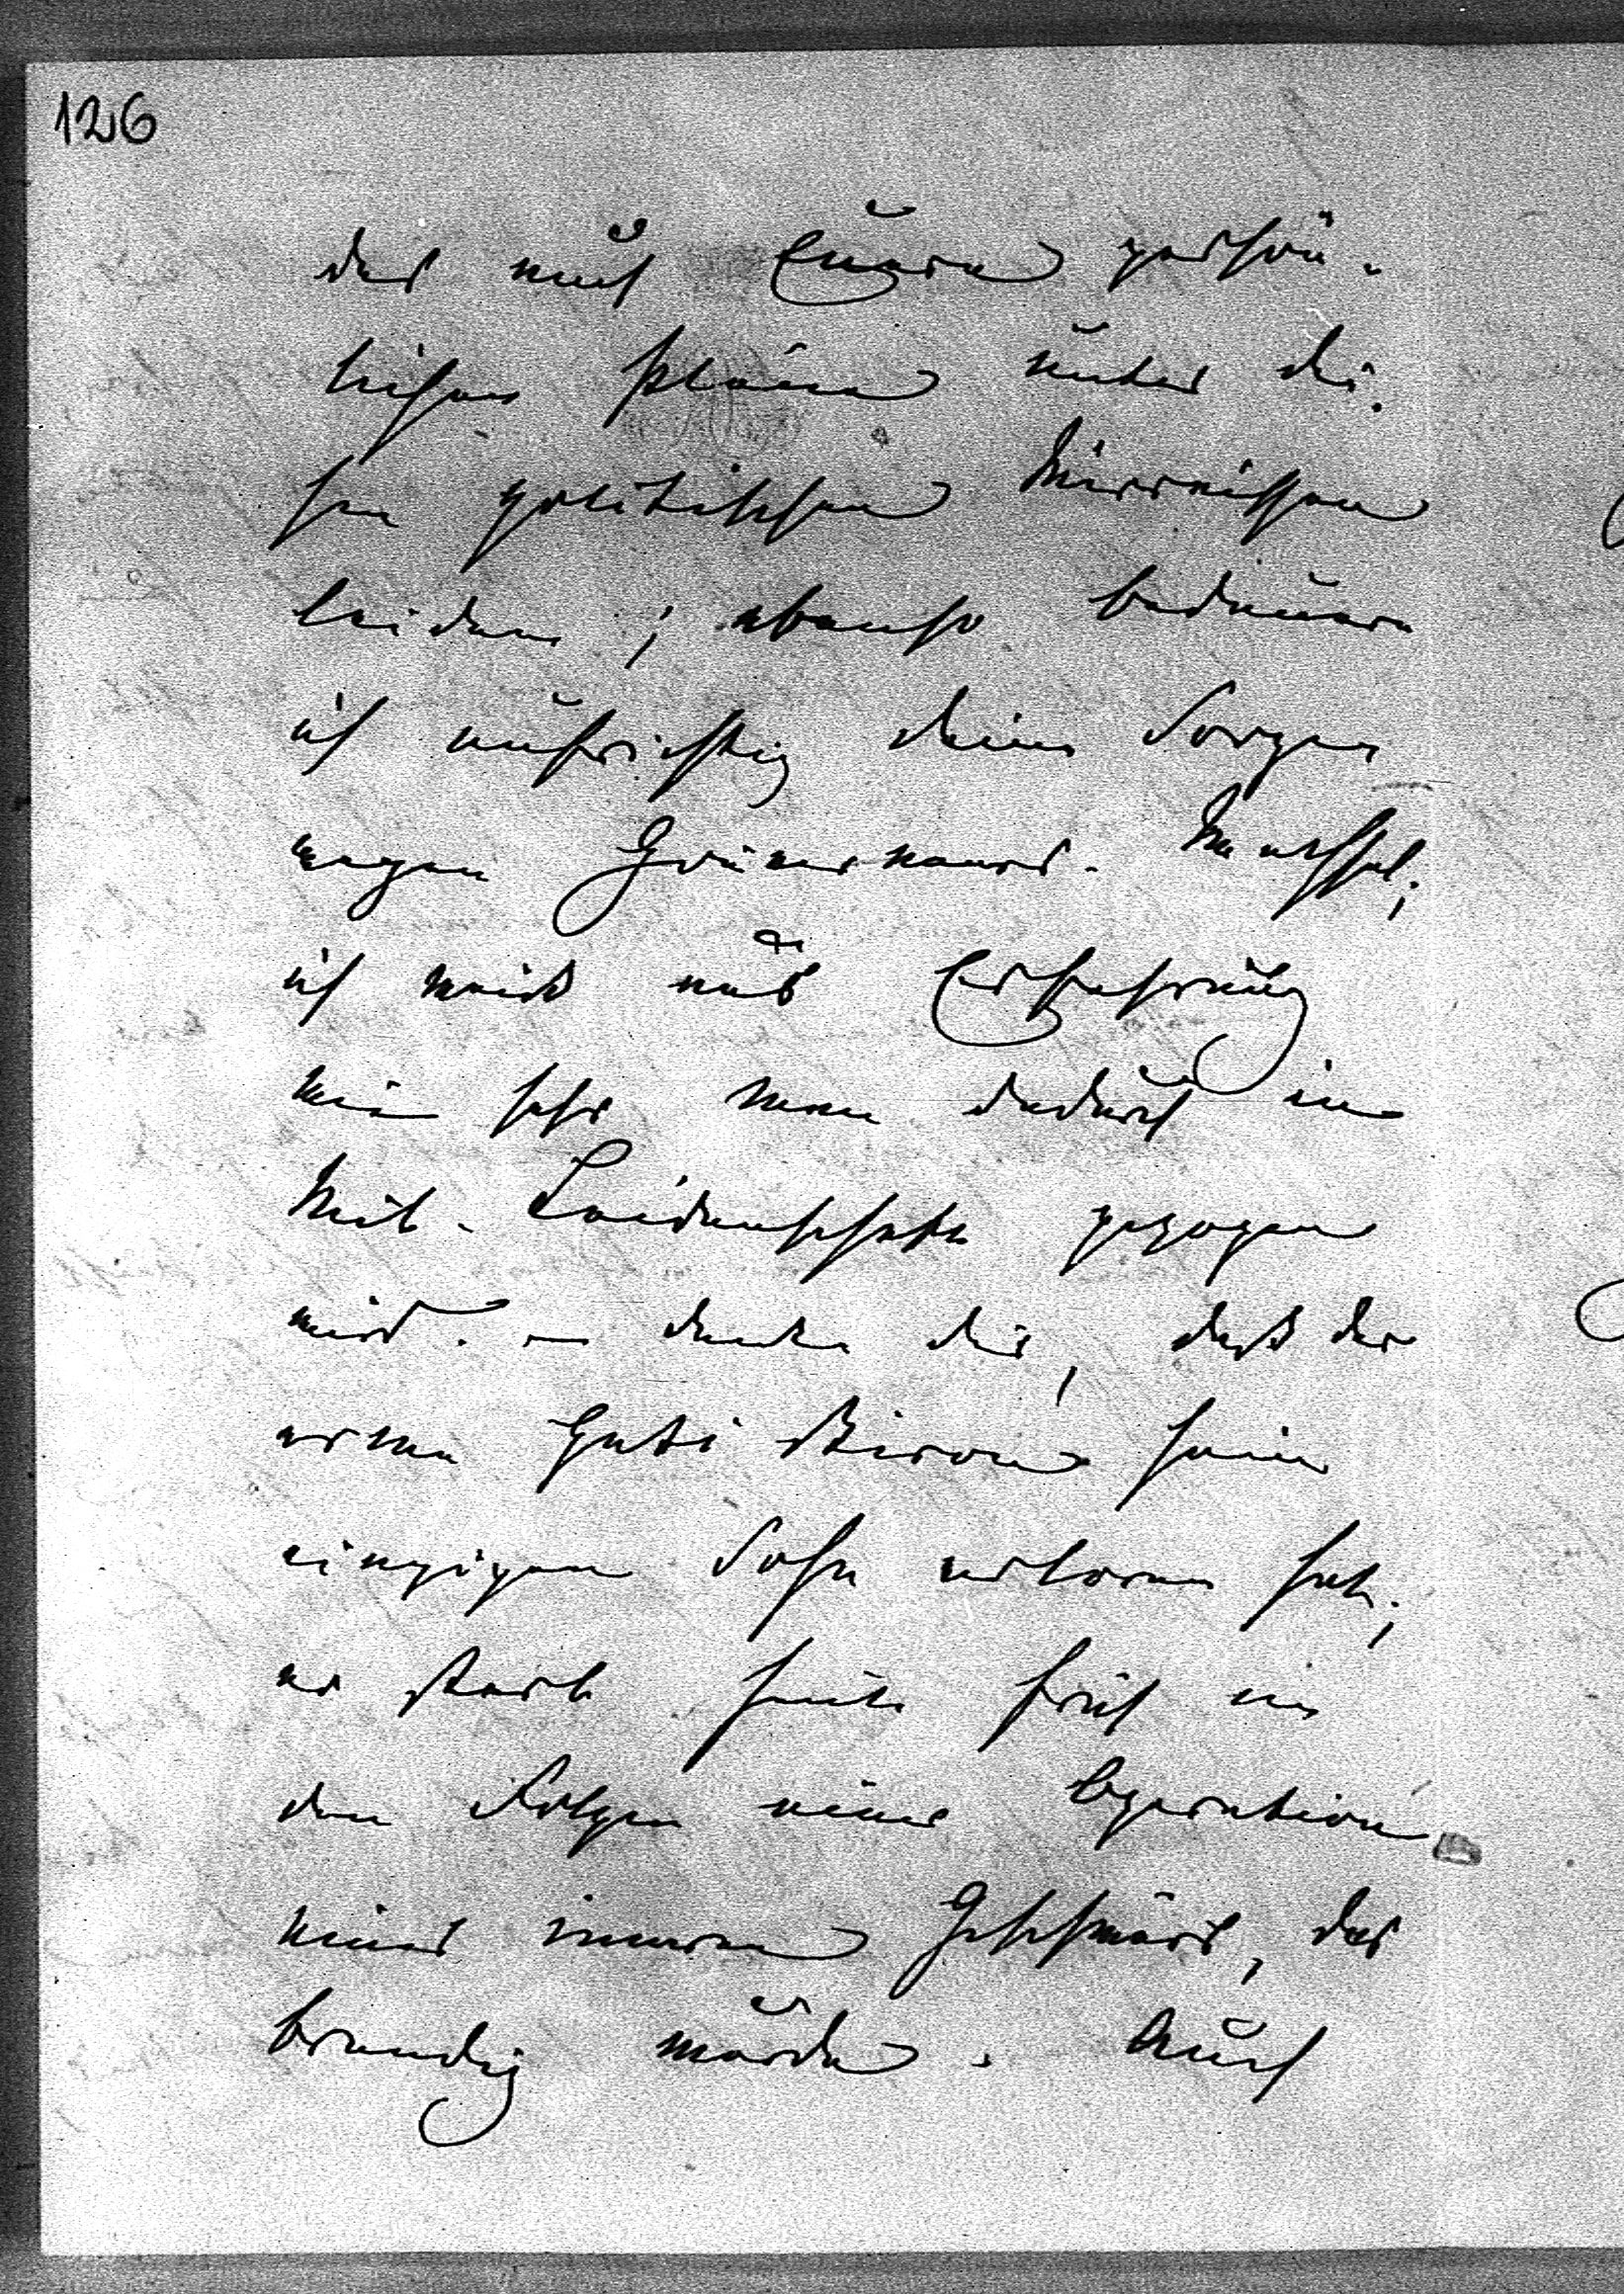 126
das auch Euere persön-
lichen Pläne unter die-
sen politischen Wirrnissen
leiden; ebenso bedauere
ich aufrichtig Deine Sorgen
wegen
ich weiß aus Erfahrung
wie sehr man dadurch in
Mit-Leidenschaft gezogen
wird. – denke Dir, daß der
arme Gusti Biron seinen
einzigen Sohn verloren hat;
er starb heute früh an
den Folgen einer Operation
eines inneren Geschwürs, das
brandig wurde. Auch